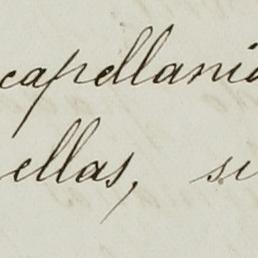 capellania
ellas, si